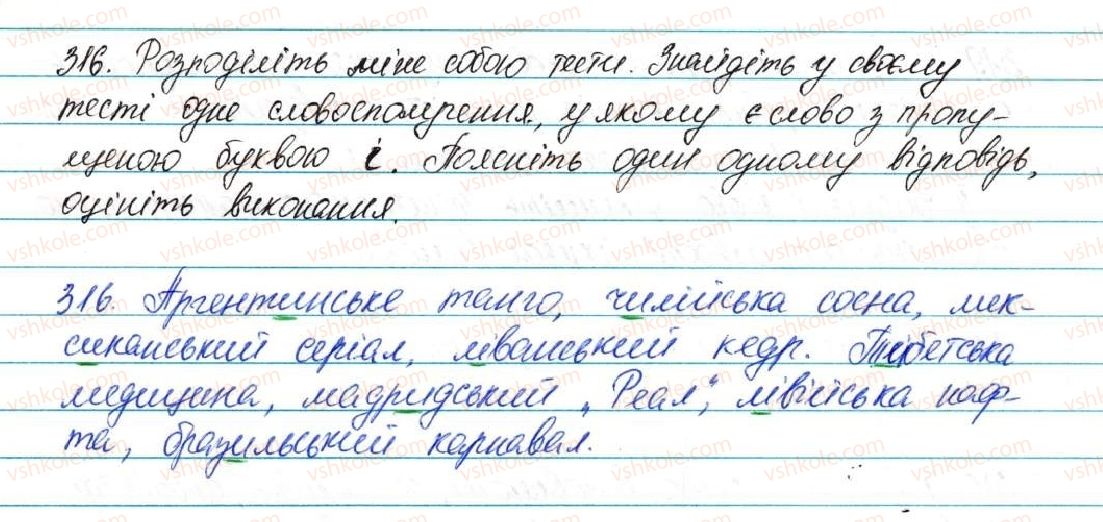 316. Розподіліть між собою тести. Знайдіть у своєму
тесті одне словосполучення, у якому є слово з пропу-
щеною буквою і. Поясніть один одному відповідь,
оцініть виконання.
316. Аргентинське танго, чилійська сосна, мек-
сиканський серіал, ліванський кедр. Тибетська
медицина, мадридський „Реал", лівійська наф-
та, бразильський карнавал.